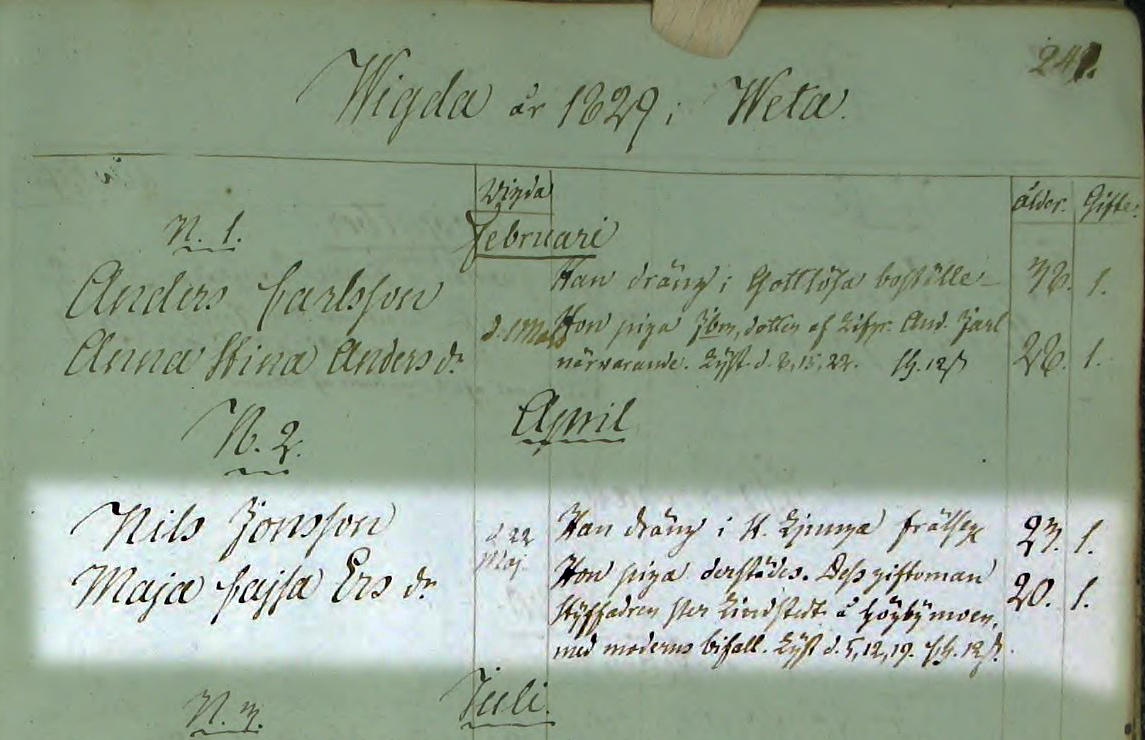 241.
Wigda år 1829 i Weta.
Vigda
ålder. Gifte.
N. 1.
Februari
Anders Carlsson
Han dräng i Gottlösa boställe
Anna Stina Anders dr
Hon piga dotter af And. Jarl
närvarande. Lyst d. 8, 15, 22.
28. 1.
N. 2.
April
Nils Jonsson
d. 22 Maj
Han dräng i St. frälse
23. 1.
Maja Cajsa Ers dr
Hon piga derstädes. Dess giftoman
20. 1.
styffadren Pter Lindstedt å Högbymoen,
med moderns bifall. Lyst d. 5, 12, 19.
N. 3.
Juli.